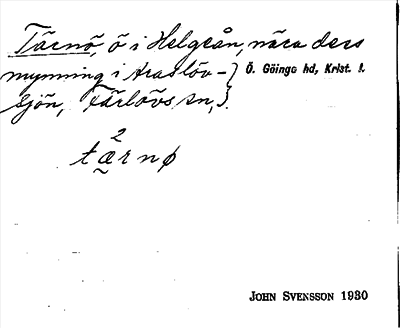 Tärnö, ö i Helgeån, nära dess
mynning i Araslöv-} Ö. Göinge hd, Krist. l.
sjön, Färlövs sn,}.
2
tærnø
JOHN SVENSSON 1930